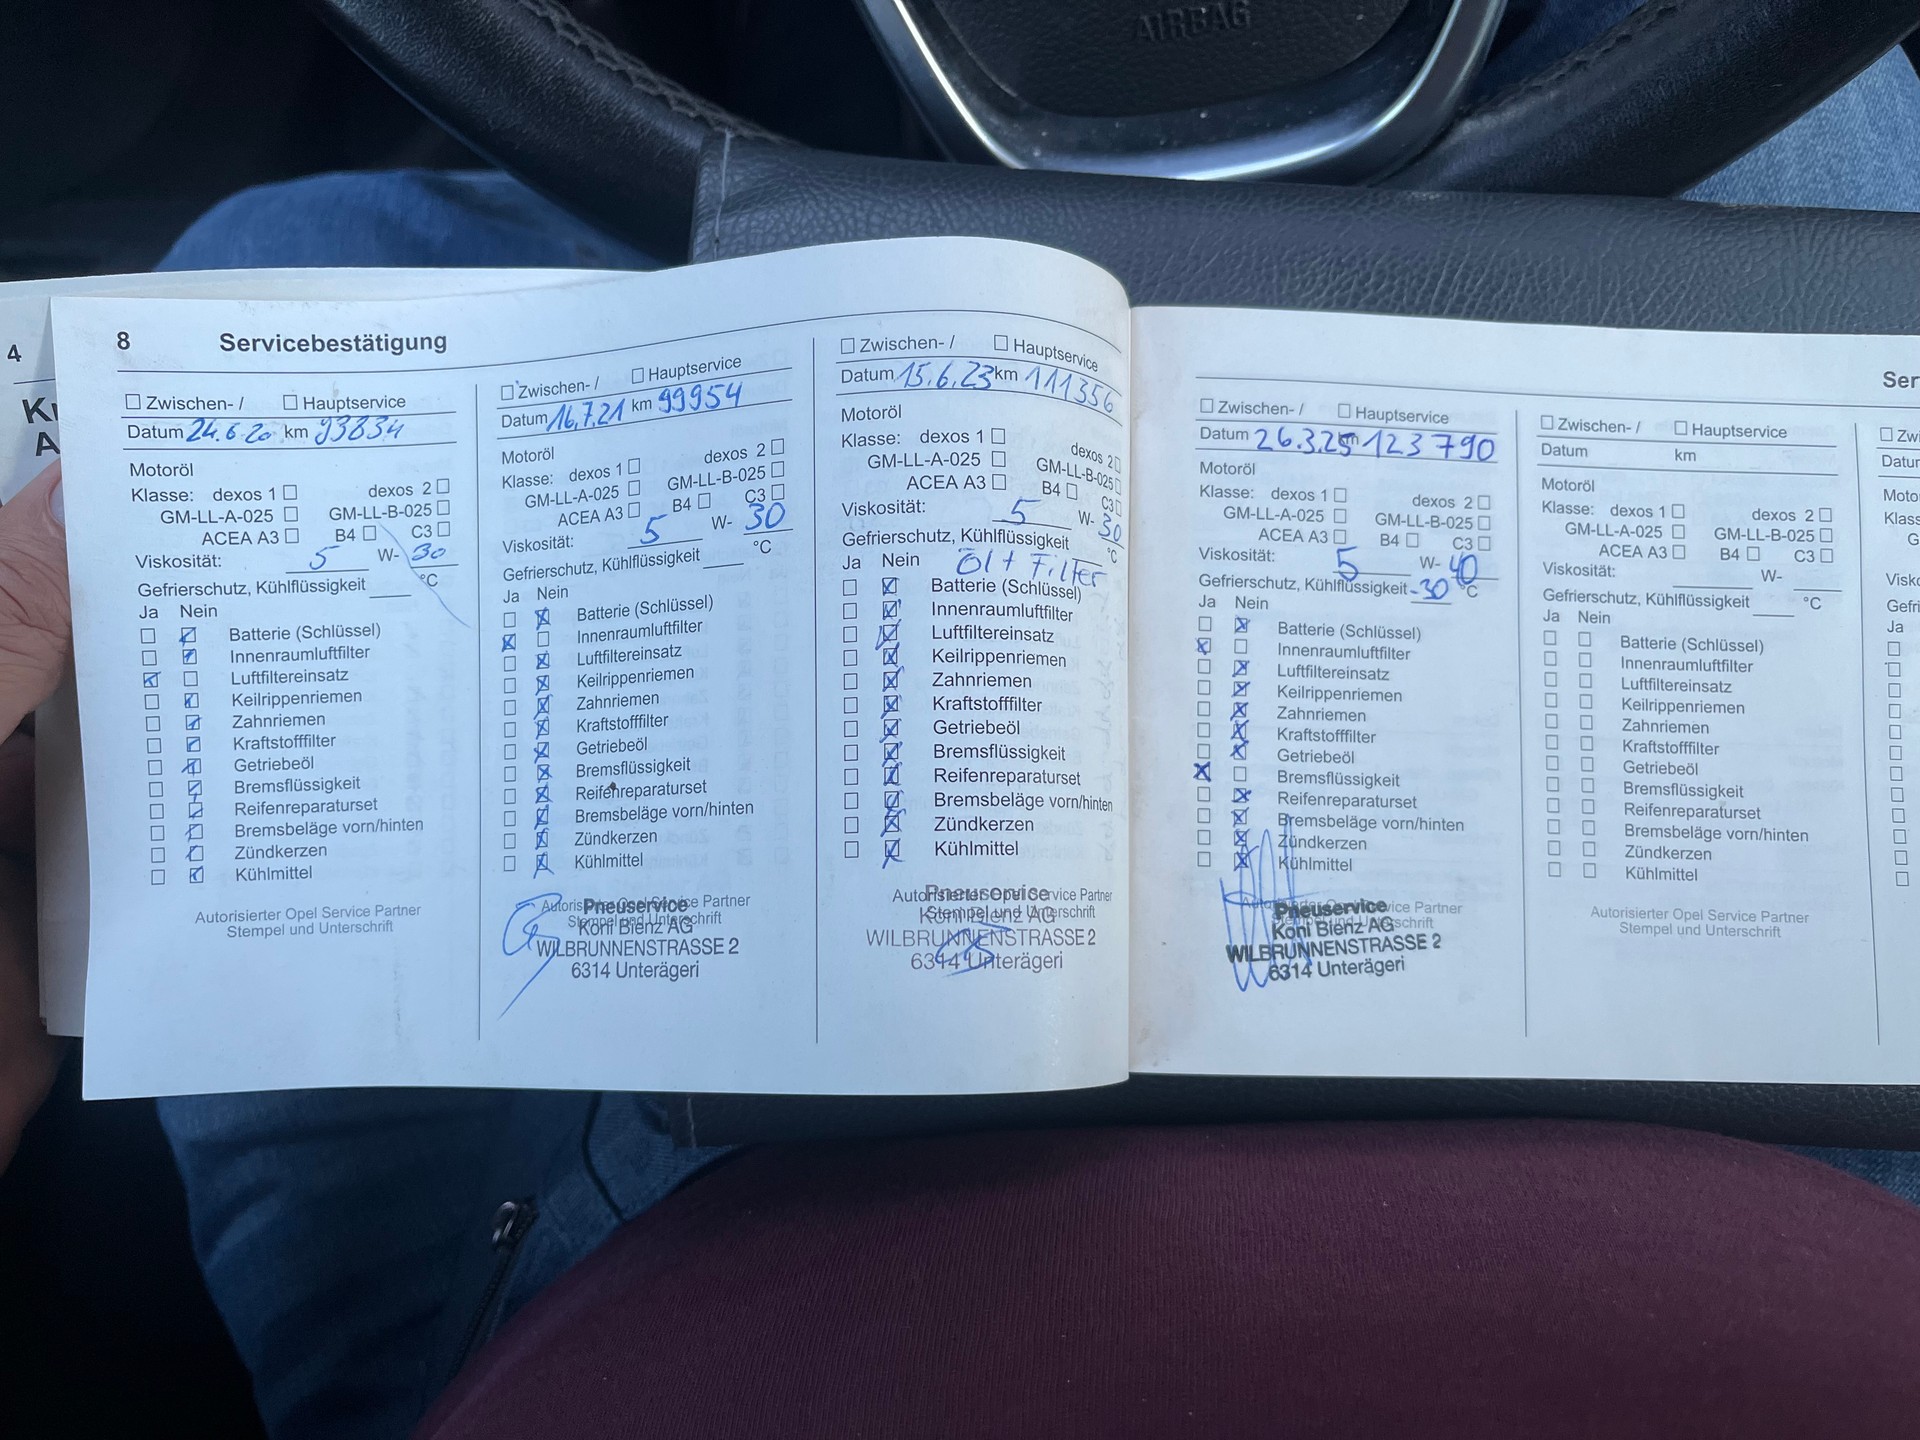 AIRBAG
4
8 Servicebestätigung
☐ Zwischen- / ☐ Hauptservice
Datum 24.6.20 km 93834
Motoröl
Klasse: dexos 1 ☐ dexos 2 ☐
GM-LL-A-025 ☐ GM-LL-B-025 ☐
ACEA A3 ☐ B4 ☐ C3 ☐
Viskosität: 5 W- 30
Gefrierschutz, Kühlflüssigkeit ____ °C
Ja Nein
☐ ☒ Batterie (Schlüssel)
☐ ☒ Innenraumluftfilter
☒ ☐ Luftfiltereinsatz
☐ ☒ Keilrippenriemen
☐ ☒ Zahnriemen
☐ ☒ Kraftstofffilter
☐ ☒ Getriebeöl
☐ ☒ Bremsflüssigkeit
☐ ☒ Reifenreparaturset
☐ ☒ Bremsbeläge vorn/hinten
☐ ☒ Zündkerzen
☐ ☒ Kühlmittel
Autorisierter Opel Service Partner
Stempel und Unterschrift
☐ Zwischen- / ☐ Hauptservice
Datum 16.7.21 km 99954
Motoröl
Klasse: dexos 1 ☐ dexos 2 ☐
GM-LL-A-025 ☐ GM-LL-B-025 ☐
ACEA A3 ☐ B4 ☐ C3 ☐
Viskosität: 5 W- 30
Gefrierschutz, Kühlflüssigkeit ____ °C
Ja Nein
☐ ☒ Batterie (Schlüssel)
☒ ☐ Innenraumluftfilter
☐ ☒ Luftfiltereinsatz
☐ ☒ Keilrippenriemen
☐ ☒ Zahnriemen
☐ ☒ Kraftstofffilter
☐ ☒ Getriebeöl
☐ ☒ Bremsflüssigkeit
☐ ☒ Reifenreparaturset
☐ ☒ Bremsbeläge vorn/hinten
☐ ☒ Zündkerzen
☐ ☒ Kühlmittel
Autorisierter Opel Service Partner
Stempel und Unterschrift
Pneuservice
Koni Bienz AG
WILBRUNNENSTRASSE 2
6314 Unterägeri
☐ Zwischen- / ☐ Hauptservice
Datum 15.6.23 km 111356
Motoröl
Klasse: dexos 1 ☐ dexos 2 ☐
GM-LL-A-025 ☐ GM-LL-B-025 ☐
ACEA A3 ☐ B4 ☐ C3 ☐
Viskosität: 5 W- 30
Gefrierschutz, Kühlflüssigkeit ____ °C
Ja Nein Öl + Filter
☐ ☒ Batterie (Schlüssel)
☐ ☒ Innenraumluftfilter
☐ ☒ Luftfiltereinsatz
☐ ☒ Keilrippenriemen
☐ ☒ Zahnriemen
☐ ☒ Kraftstofffilter
☐ ☒ Getriebeöl
☐ ☒ Bremsflüssigkeit
☐ ☒ Reifenreparaturset
☐ ☒ Bremsbeläge vorn/hinten
☐ ☒ Zündkerzen
☐ ☒ Kühlmittel
Autorisierter Opel Service Partner
Stempel und Unterschrift
Pneuservice
Koni Bienz AG
WILBRUNNENSTRASSE 2
6314 Unterägeri
Ser
☐ Zwischen- / ☐ Hauptservice
Datum 26.3.25 km 123790
Motoröl
Klasse: dexos 1 ☐ dexos 2 ☐
GM-LL-A-025 ☐ GM-LL-B-025 ☐
ACEA A3 ☐ B4 ☐ C3 ☐
Viskosität: 5 W- 40
Gefrierschutz, Kühlflüssigkeit -30 °C
Ja Nein
☐ ☒ Batterie (Schlüssel)
☒ ☐ Innenraumluftfilter
☐ ☒ Luftfiltereinsatz
☐ ☒ Keilrippenriemen
☐ ☒ Zahnriemen
☐ ☒ Kraftstofffilter
☐ ☒ Getriebeöl
☒ ☐ Bremsflüssigkeit
☐ ☒ Reifenreparaturset
☐ ☒ Bremsbeläge vorn/hinten
☐ ☒ Zündkerzen
☐ ☒ Kühlmittel
Autorisierter Opel Service Partner
Stempel und Unterschrift
Pneuservice
Koni Bienz AG
WILBRUNNENSTRASSE 2
6314 Unterägeri
☐ Zwischen- / ☐ Hauptservice
Datum km
Motoröl
Klasse: dexos 1 ☐ dexos 2 ☐
GM-LL-A-025 ☐ GM-LL-B-025 ☐
ACEA A3 ☐ B4 ☐ C3 ☐
Viskosität: ____ W- ____
Gefrierschutz, Kühlflüssigkeit ____ °C
Ja Nein
☐ ☐ Batterie (Schlüssel)
☐ ☐ Innenraumluftfilter
☐ ☐ Luftfiltereinsatz
☐ ☐ Keilrippenriemen
☐ ☐ Zahnriemen
☐ ☐ Kraftstofffilter
☐ ☐ Getriebeöl
☐ ☐ Bremsflüssigkeit
☐ ☐ Reifenreparaturset
☐ ☐ Bremsbeläge vorn/hinten
☐ ☐ Zündkerzen
☐ ☐ Kühlmittel
Autorisierter Opel Service Partner
Stempel und Unterschrift
☐ Zwi
Datur
Moto
Klass
G
Visko
Gefri
Ja